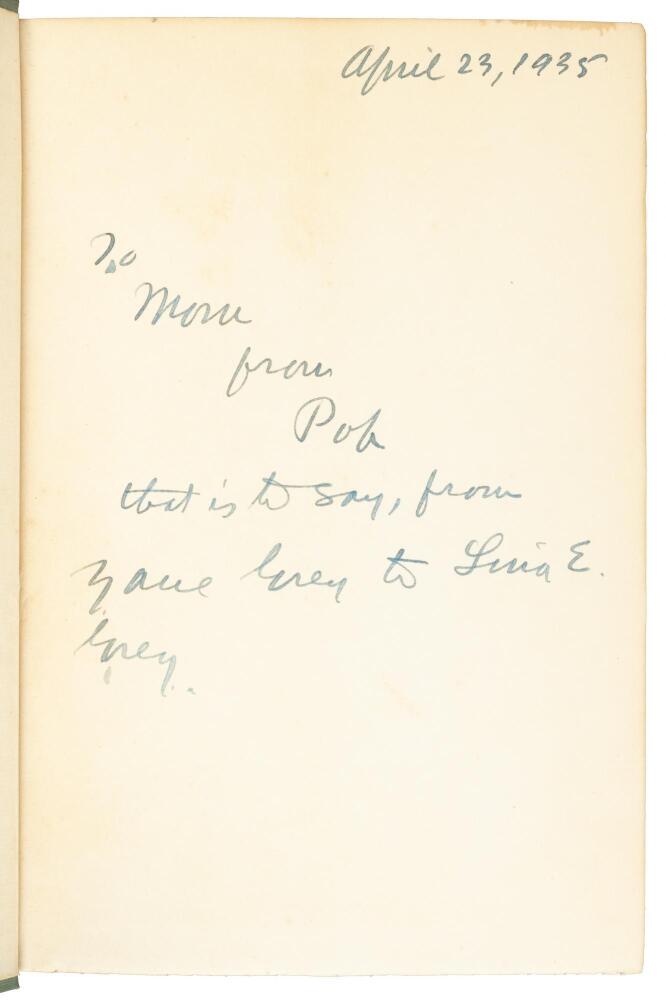 April 23, 1935
To
Mom
from
Pop
that is to say, from
Zane Grey to Lina E.
Grey.